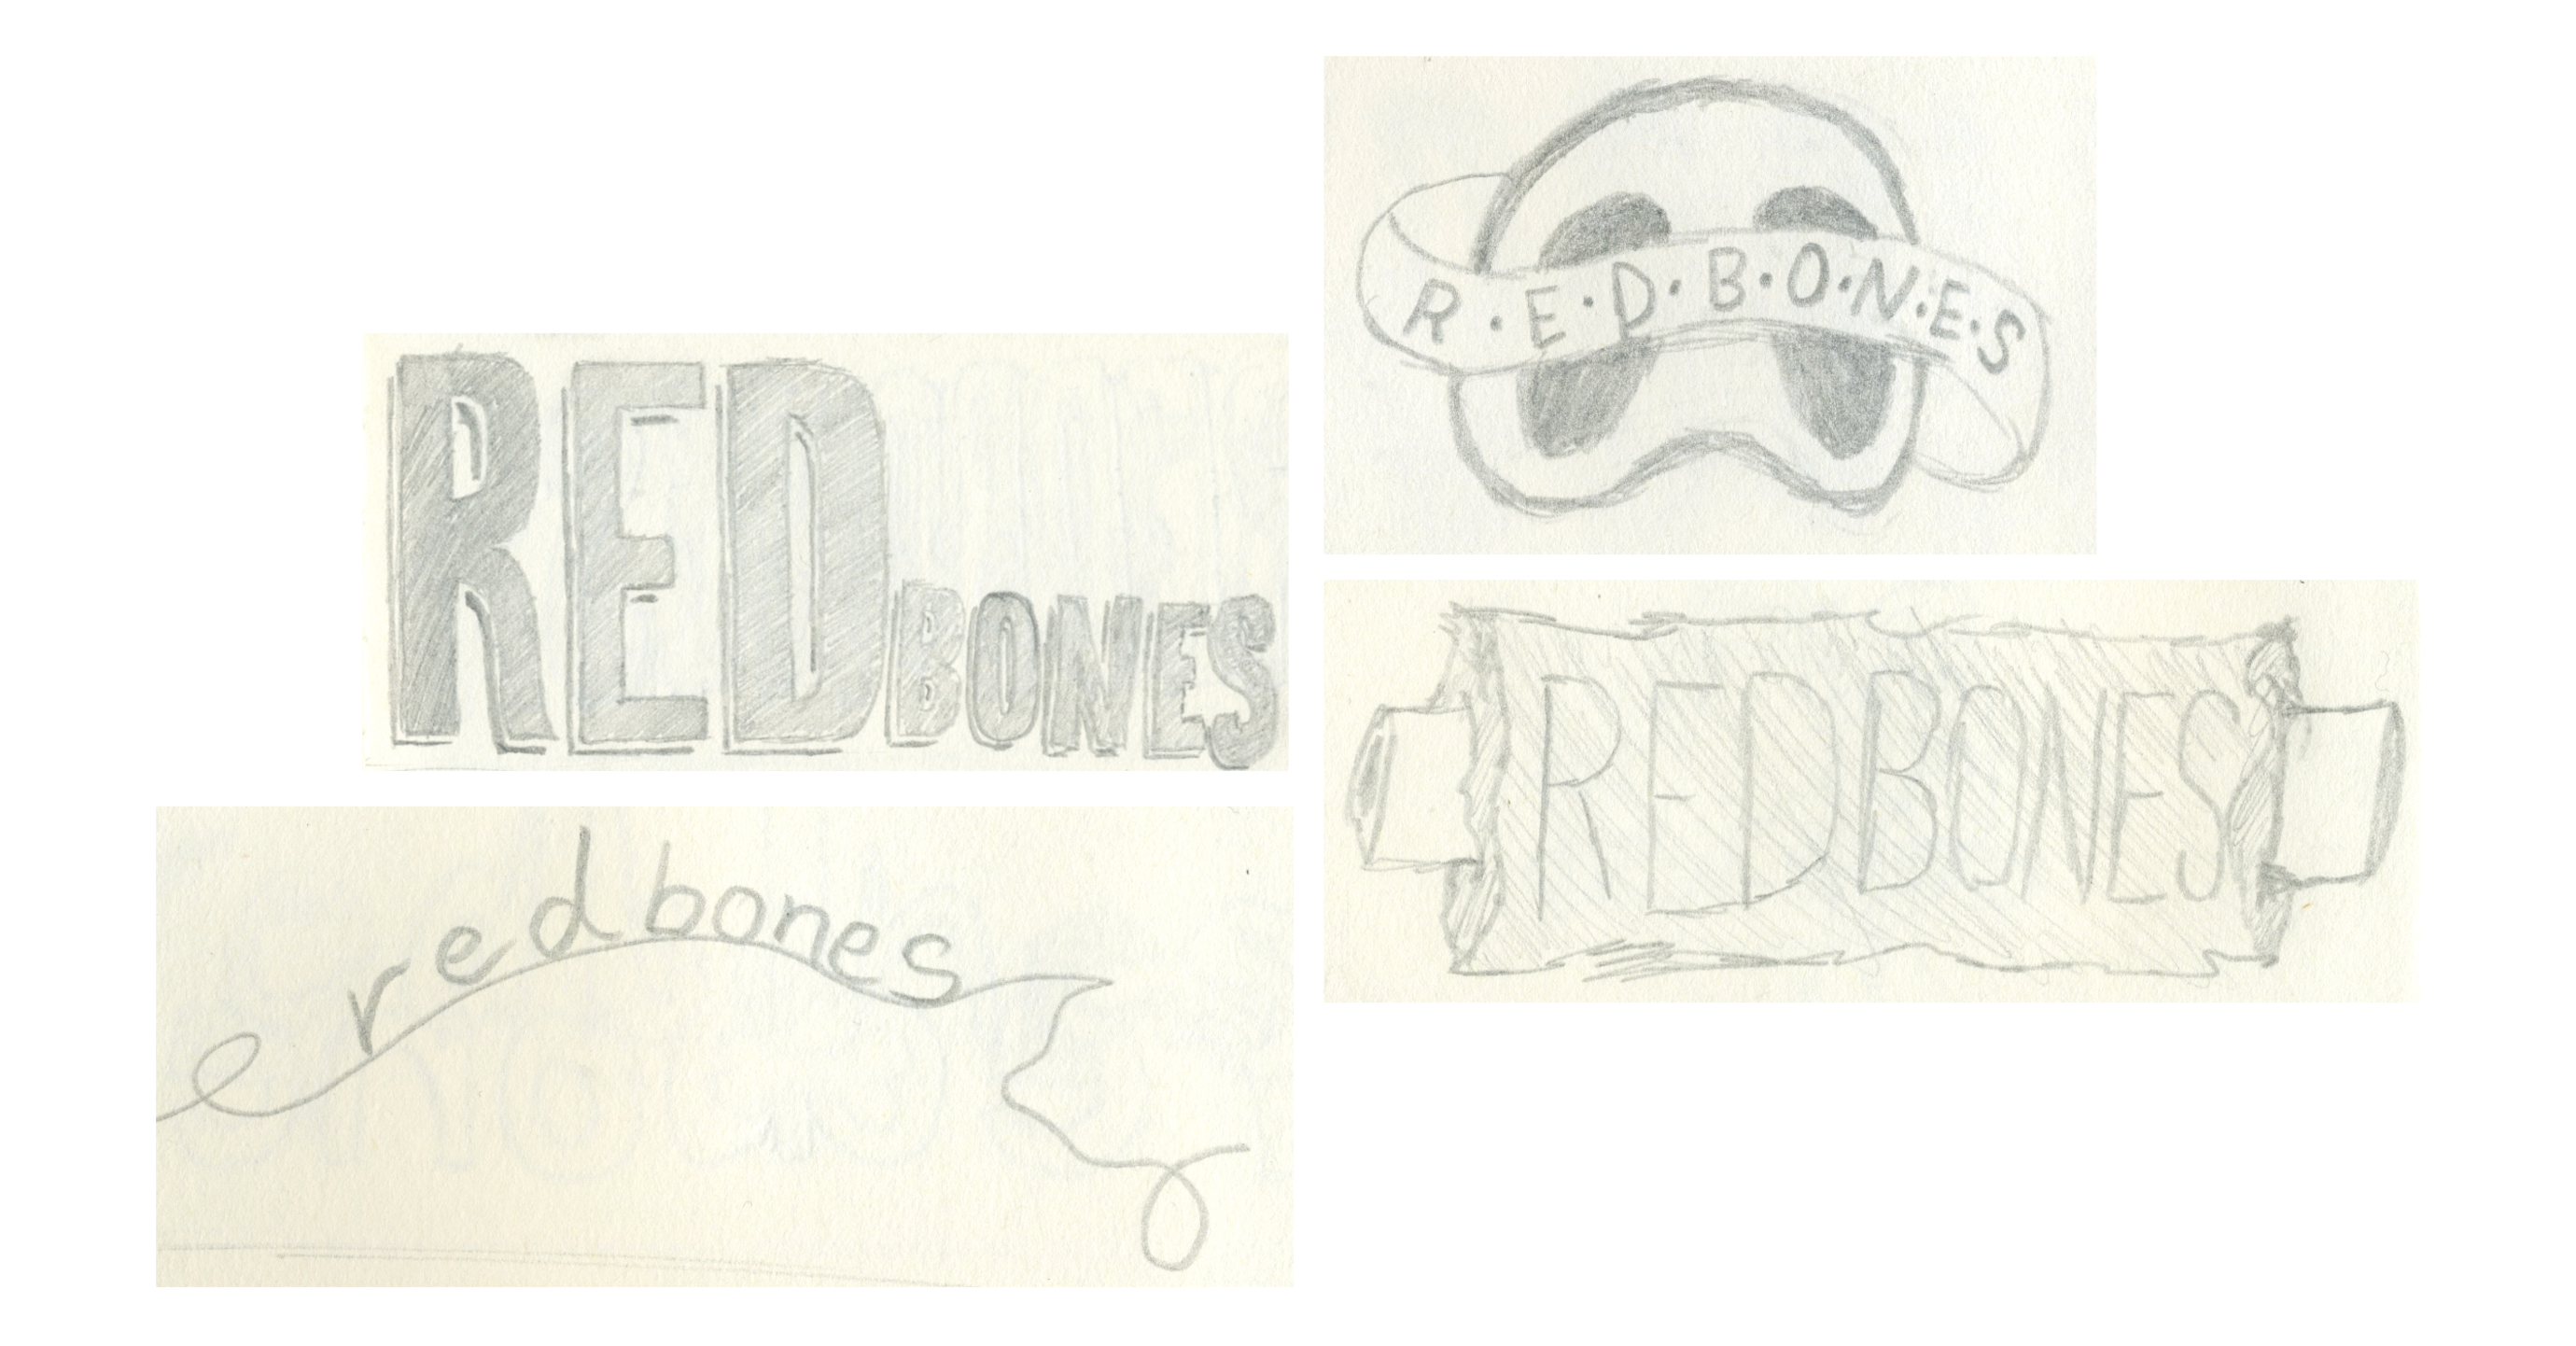 REDBONES
R·E·D·B·O·N·E·S
redbones
REDBONES